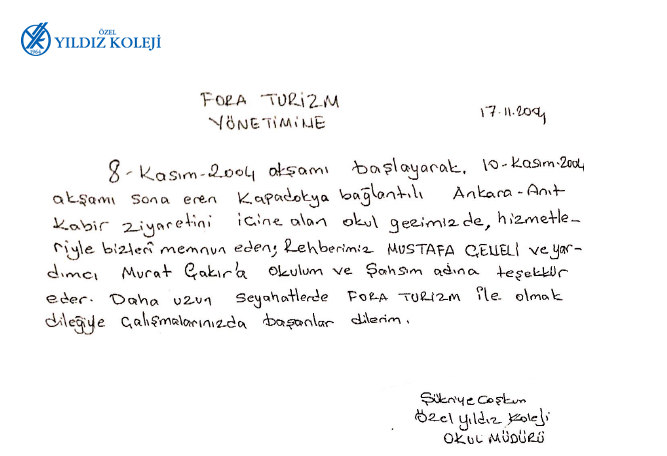 ÖZEL
YILDIZ KOLEJİ
1964
FORA TURİZM
YÖNETİMİNE
17.11.2004
8-Kasım-2004 akşamı başlayarak, 10-Kasım-2004
akşamı sona eren Kapadokya bağlantılı Ankara-Anıt
Kabir ziyaretini içine alan okul gezimizde, hizmetle-
riyle bizleri memnun eden; Rehberimiz MUSTAFA GENELİ ve yar-
dımcı Murat Çakır'a okulum ve Şahsım adına teşekkür
eder. Daha uzun seyahatlerde FORA TURİZM ile olmak
dileğiye çalışmalarınızda başarılar dilerim.
Şükriye Coşkun
Özel Yıldız Koleji
OKUL MÜDÜRÜ